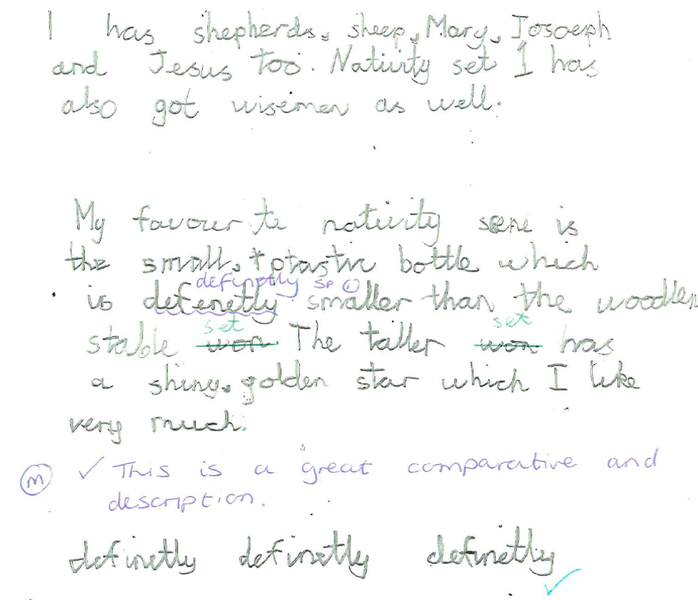 I has shepherds, sheep, Mary, Josoeph
and Jesus too. Nativity set 1 has
also got wisemen as well.
My favourite nativity scene is
the small, plastic bottle which
definetly sp ①
is defenetly smaller than the wooden
set set
stable won The taller won has
a shiny, golden star which I like
very much.
m ✓ This is a great comparative and
description.
definetly definetly definetly
✓